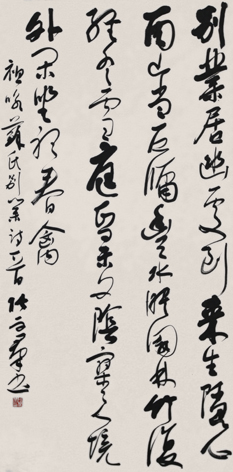 別業居幽處到來生隱心
南山當戶牖灃水映園林竹覆
經冬雪庭昏未夕陰寥寥人境
外閒坐聽春禽
祖詠蘇氏別業詩一首